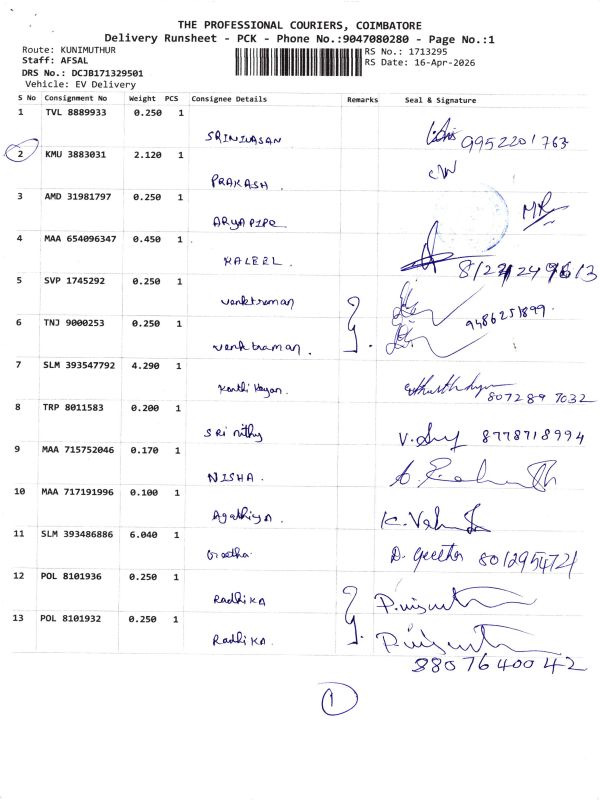 THE PROFESSIONAL COURIERS, COIMBATORE
Delivery Runsheet - PCK - Phone No.:9047080280 - Page No.:1
Route: KUNIMUTHUR
RS No.: 1713295
Staff: AFSAL
RS Date: 16-Apr-2026
DRS No.: DCJB171329501
Vehicle: EV Delivery
S No Consignment No Weight PCS Consignee Details Remarks Seal & Signature
1 TVL 8889933 0.250 1
SRINIVASAN 9952201763
2 KMU 3883031 2.120 1
PRAKASH.
3 AMD 31981797 0.250 1
ARYAPIPE
4 MAA 654096347 0.450 1
KALEEL.
5 SVP 1745292 0.250 1
Venktraman
6 TNJ 9000253 0.250 1
9486251899.
Venktraman.
7 SLM 393547792 4.290 1
8072897032
8 TRP 8011583 0.200 1
SRI nithy 8778718994
9 MAA 715752046 0.170 1
NISHA.
10 MAA 717191996 0.100 1
Agathiya.
11 SLM 393486886 6.040 1
Geetha. D. Geetha
12 POL 8101936 0.250 1
Radhika
13 POL 8101932 0.250 1
Radhika.
8807640042
1